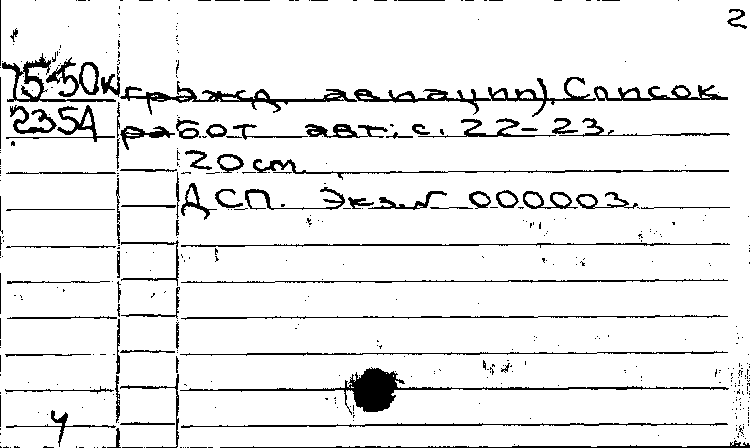 2
75-50к гражд. авиации). Список
2354 работ авт.: с. 22-23.
20 cm.
ДСП. Экз. № 000003.
4